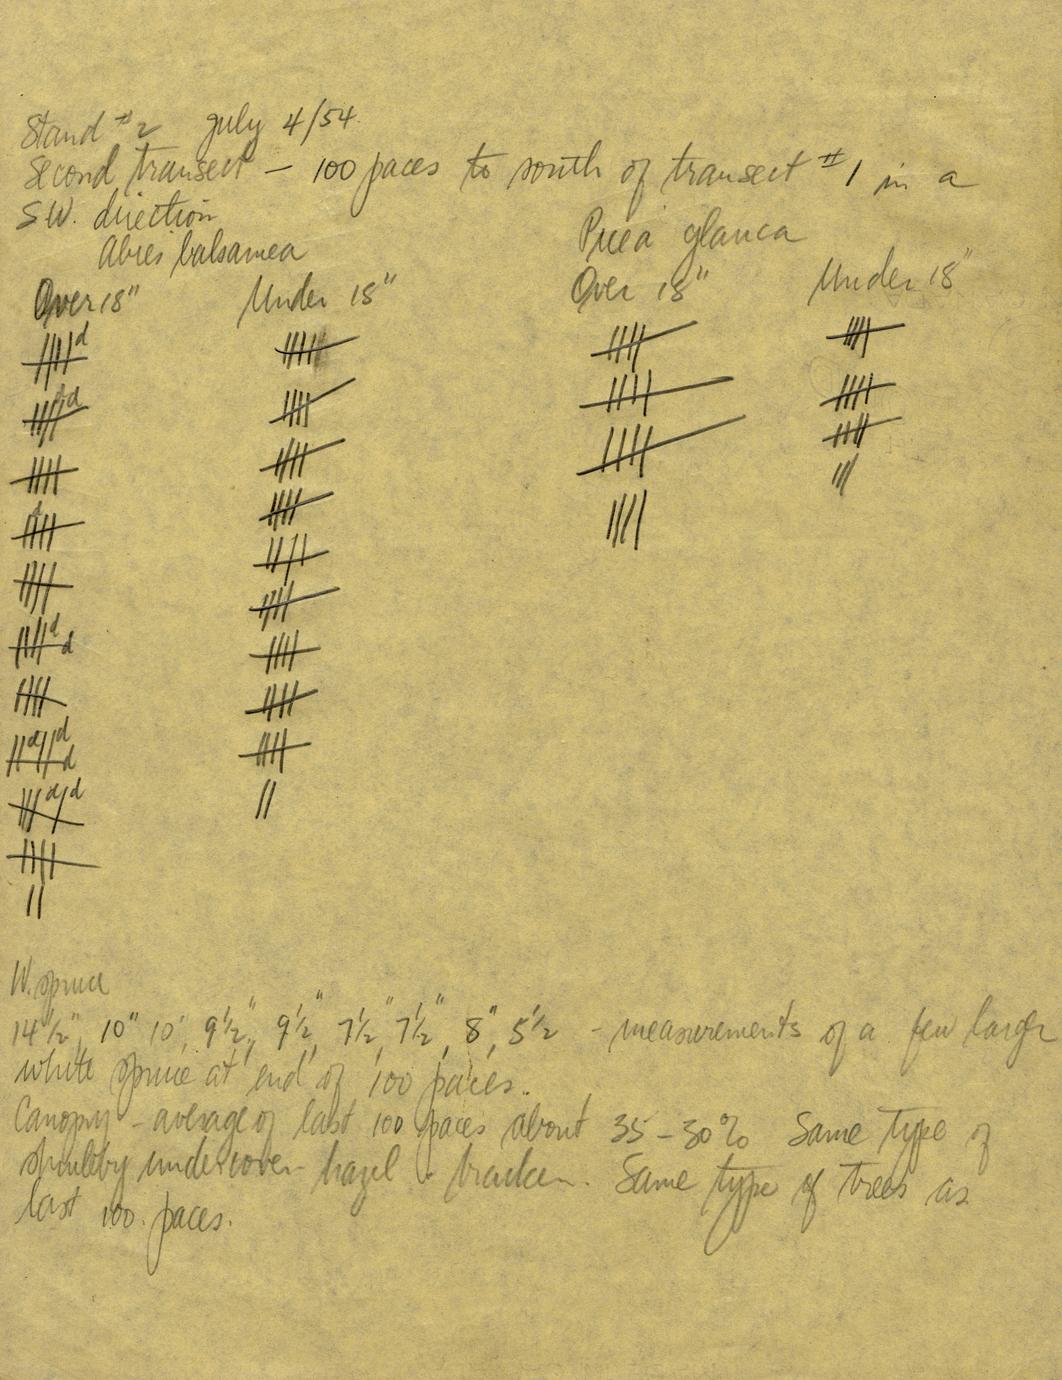 Stand #2 July 4/54.
Second transect – 100 paces to south of transect #1 in a
S.W. direction
Abies balsamea
Picea glauca
Over 18" Under 18"
Over 18" Under 18"
d
d d
d
d d
d d d
d d
W. spruce
14 1/2", 10" 10", 9 1/2", 9 1/2", 7 1/2", 7 1/2", 8", 5 1/2 – measurements of a few larger
white spruce at end of 100 paces.
Canopy – average of last 100 paces about 35–30% Same type of
shrubby undercover hazel & bracken. Same type of trees as
last 100 paces.